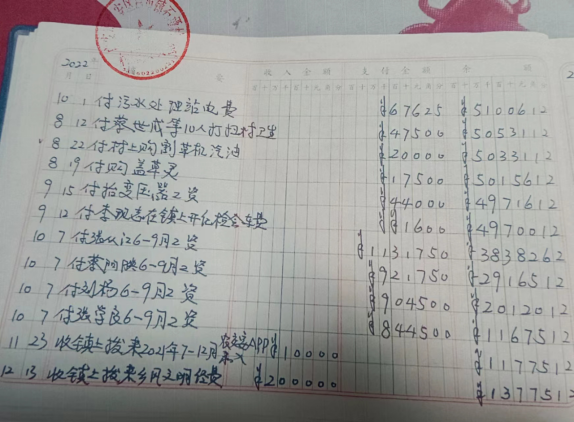 2022
月 日 要 收入金额 支付金额 余 额
10 1 付污水处理站电费 ¥67625 ¥5100612
8 12 付蔡世成等10人打扫村卫生 ¥47500 ¥5053112
8 22 付村上购割草机汽油 ¥20000 ¥5033112
8 19 付购盖草灵 ¥17500 ¥5015612
9 15 付抬变压器工资 ¥44000 ¥4971612
9 12 付李现在镇上开会车费 ¥1600 ¥4970012
10 7 付江6-9月工资 ¥1131750 ¥3838262
10 7 付蔡阿映6-9月工资 ¥921750 ¥2916512
10 7 付刘杨6-9月工资 ¥904500 ¥2012012
10 7 付张学良6-9月工资 ¥844500 ¥1167512
11 23 收镇上拨来2021年7-12月APP ¥10000 ¥1177512
12 13 收镇上拨来乡风文明经费 ¥200000 ¥1377512